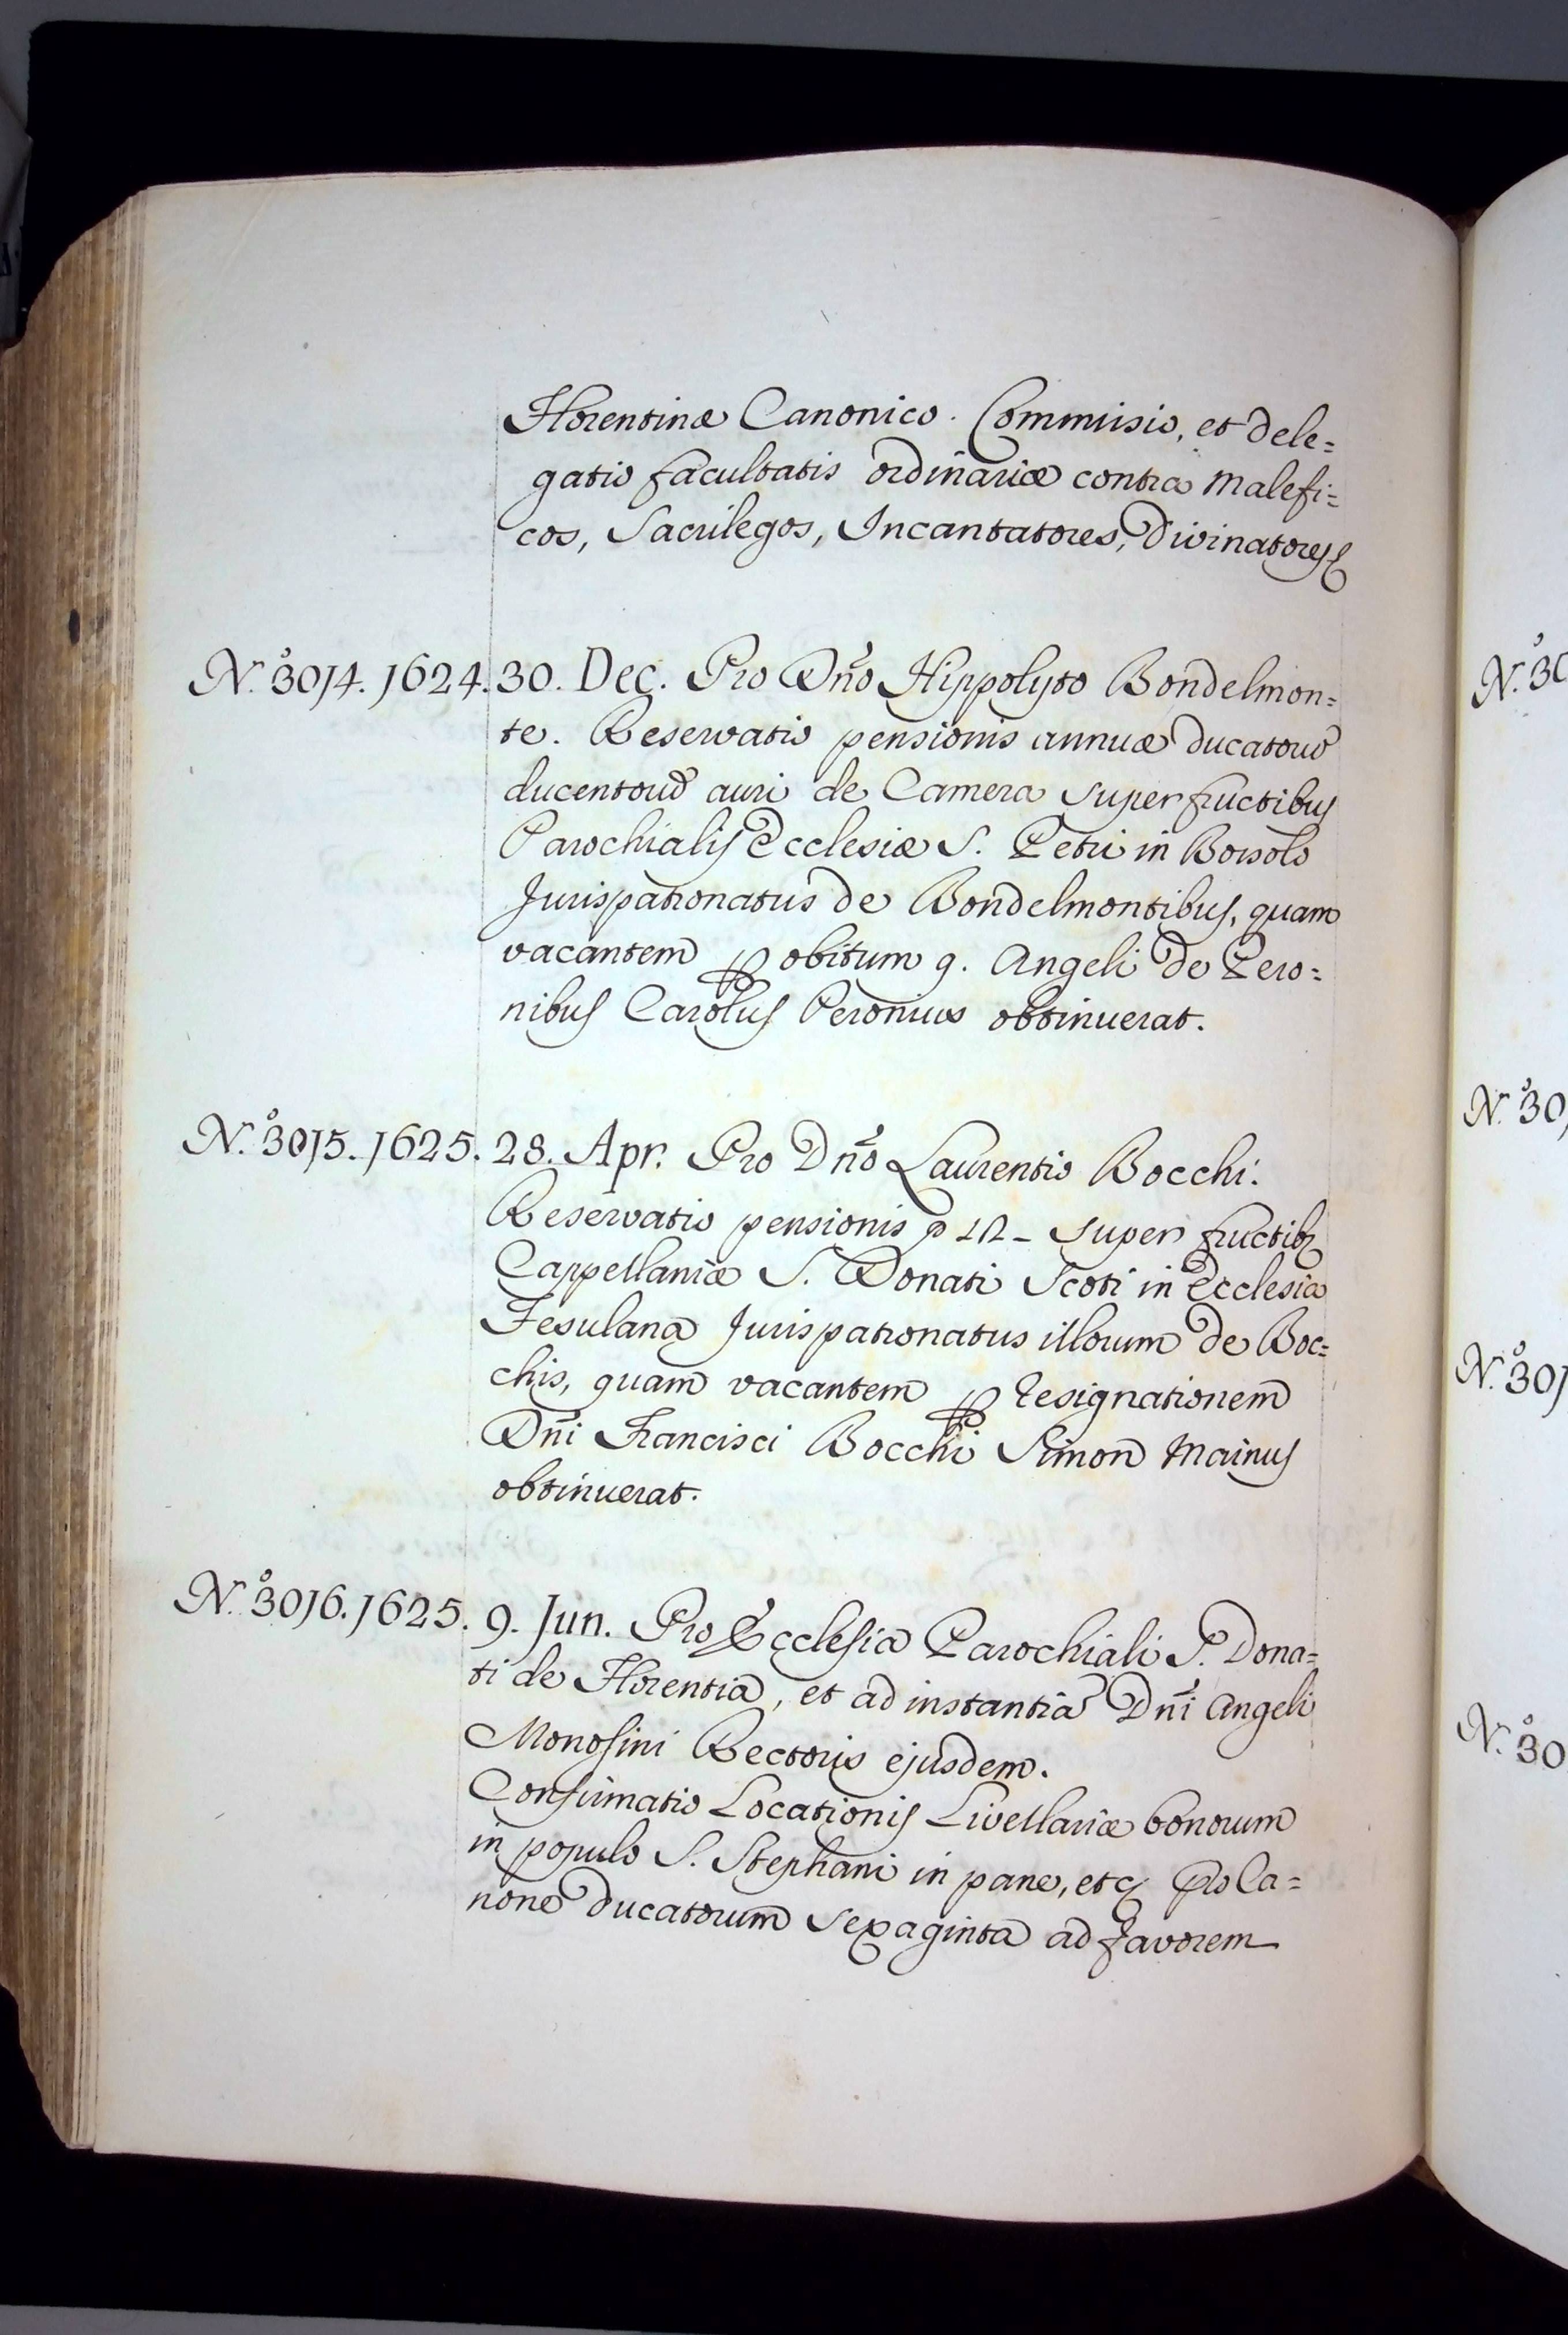 Florentinæ Canonico. Commisio, et dele=
gatio facultatis ordinariæ contra Malefi=
cos, Sacrilegos, Incantatores, Divinatores &
N.º 3014. 1624. 30. Dec. Pro Dño Hippolyto Bondelmon=
te. Reservatio pensionis annuæ ducatorũ
ducentorũ auri de Camera super fructibus
Parochialis Ecclesiæ S. Petri in Bossolo
Jurispatronatus de Bondelmontibus, quam
vacantem ꝑ obitum q. Angeli de Pero=
nibus Carolus Peronius obtinuerat.
N.º 3015. 1625. 28. Apr. Pro Dño Laurentio Bocchi.
Reservatio pensionis super fructibꝫ
Cappellaniæ S. Donati Scoti in Ecclesia
Fesulana Jurispatronatus illorum de Boc=
chis, quam vacantem ꝑ resignationem
Dñi Francisci Bocchi Simon Mainus
obtinuerat.
N.º 3016. 1625. 9. Jun. Pro Ecclesia Parochiali S. Dona=
ti de Florentia, et ad instantiã Dñi Angeli
Monosini Rectoris ejusdem.
Confirmatio Locationis Livellariæ bonorum
in populo S. Stephani in pane, etc pro Ca=
none ducatorum sexaginta ad favorem
N.º 30
N.º 30
N.º 301
N.º 30